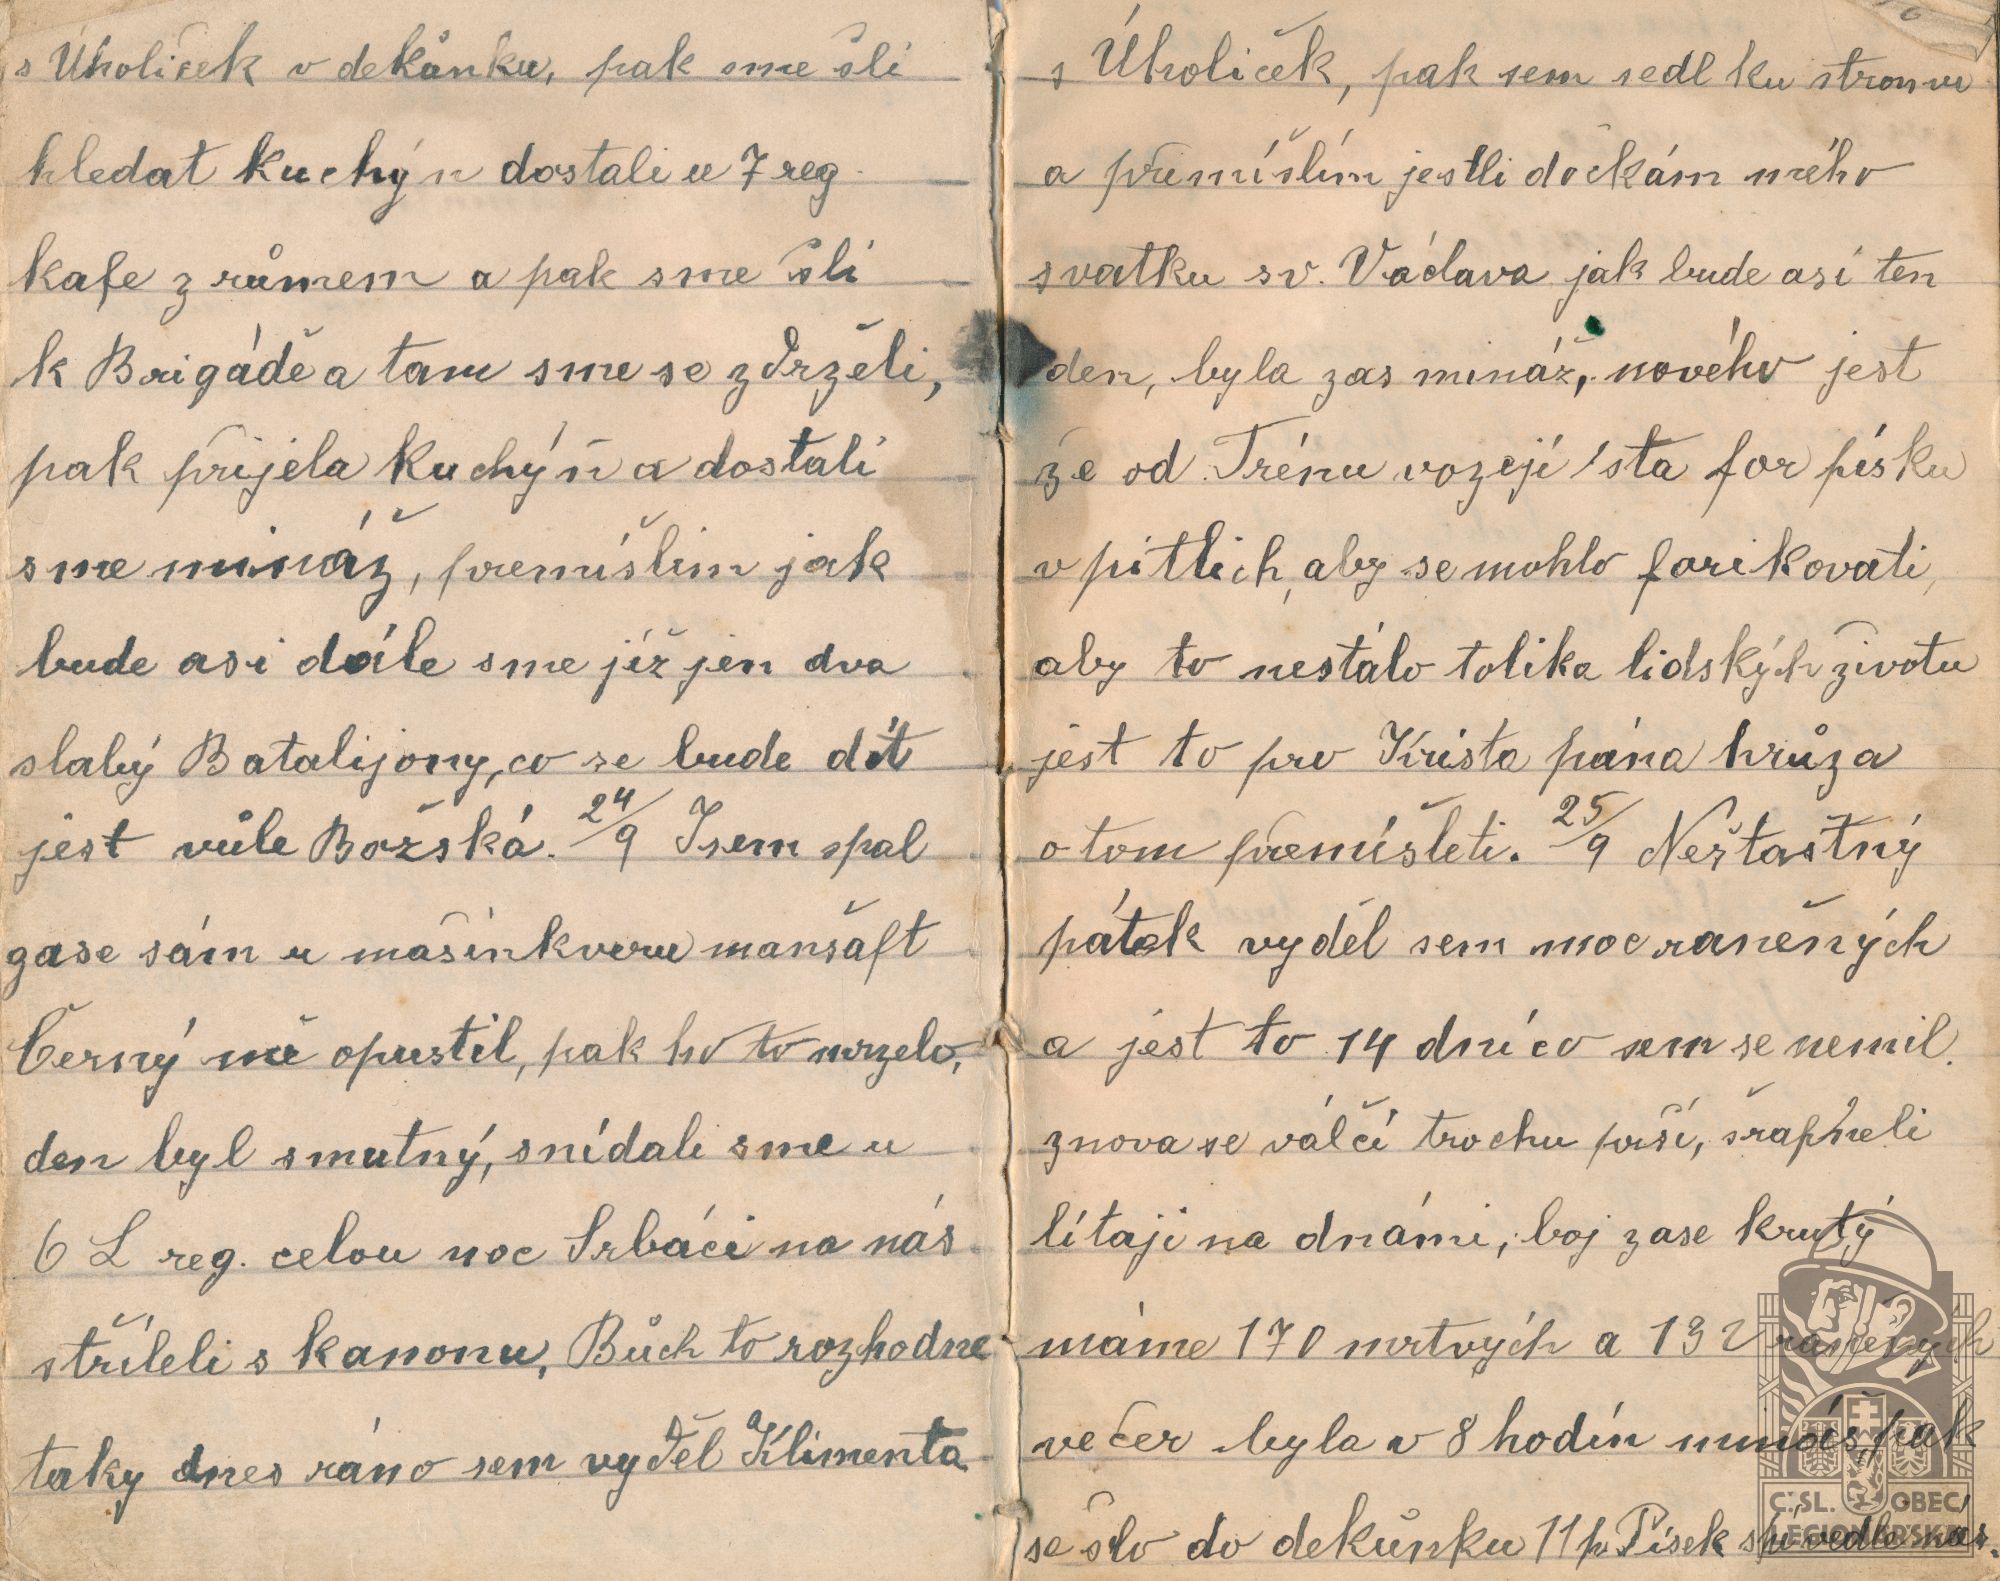 s Úholiček v dekůnku, pak sme šli
hledat kuchýn dostali u 7 reg.
kafe z růmem a pak sme šli
k Brigádě a tam sme se zdrželi,
pak prijela kuchýň a dostali
sme mináž, premíšlim jak
bude asi dále sme jíž jen dva
slabý Batalijony, co se bude dít
jest vůle Božská. 24/9 Jsem spal
zase sám u mašinkveru manšaft
Černý mě opustil, pak ho to mrzelo,
den byl smutný, snídali sme u
6 L reg. celou noc Srbáci na nás
stříleli s kanonu, Bůch to rozhodne
taky dnes ráno sem vyděl Klimenta
s Úholiček, pak sem sedl ku stromu
a přemíšlím jestli dočkám mého
svatku sv. Václava jak bude asi ten
den, byla zas mináž, nového jest
že od Trénu vozejí sta for písku
v pitlich, aby se mohlo forikovati,
aby to nestálo tolika lidských životu
jest to pro Krista pána hrůza
o tom přemíšleti. 25/9 Nežtaštný
pátek vyděl sem moc raněných
a jest to 14 dní co sem se nemil.
znova se válčí trochu prší, šrapneli
lítají na dnámi, boj zase krutý
máme 170 mrtvých a 132 raněných
večer byla v 8 hodín mináš, pak
se šlo do dekůnku 11 p. Písek spí vedle nás.
Č.SL. OBEC
LEGIONÁŘSKÁ